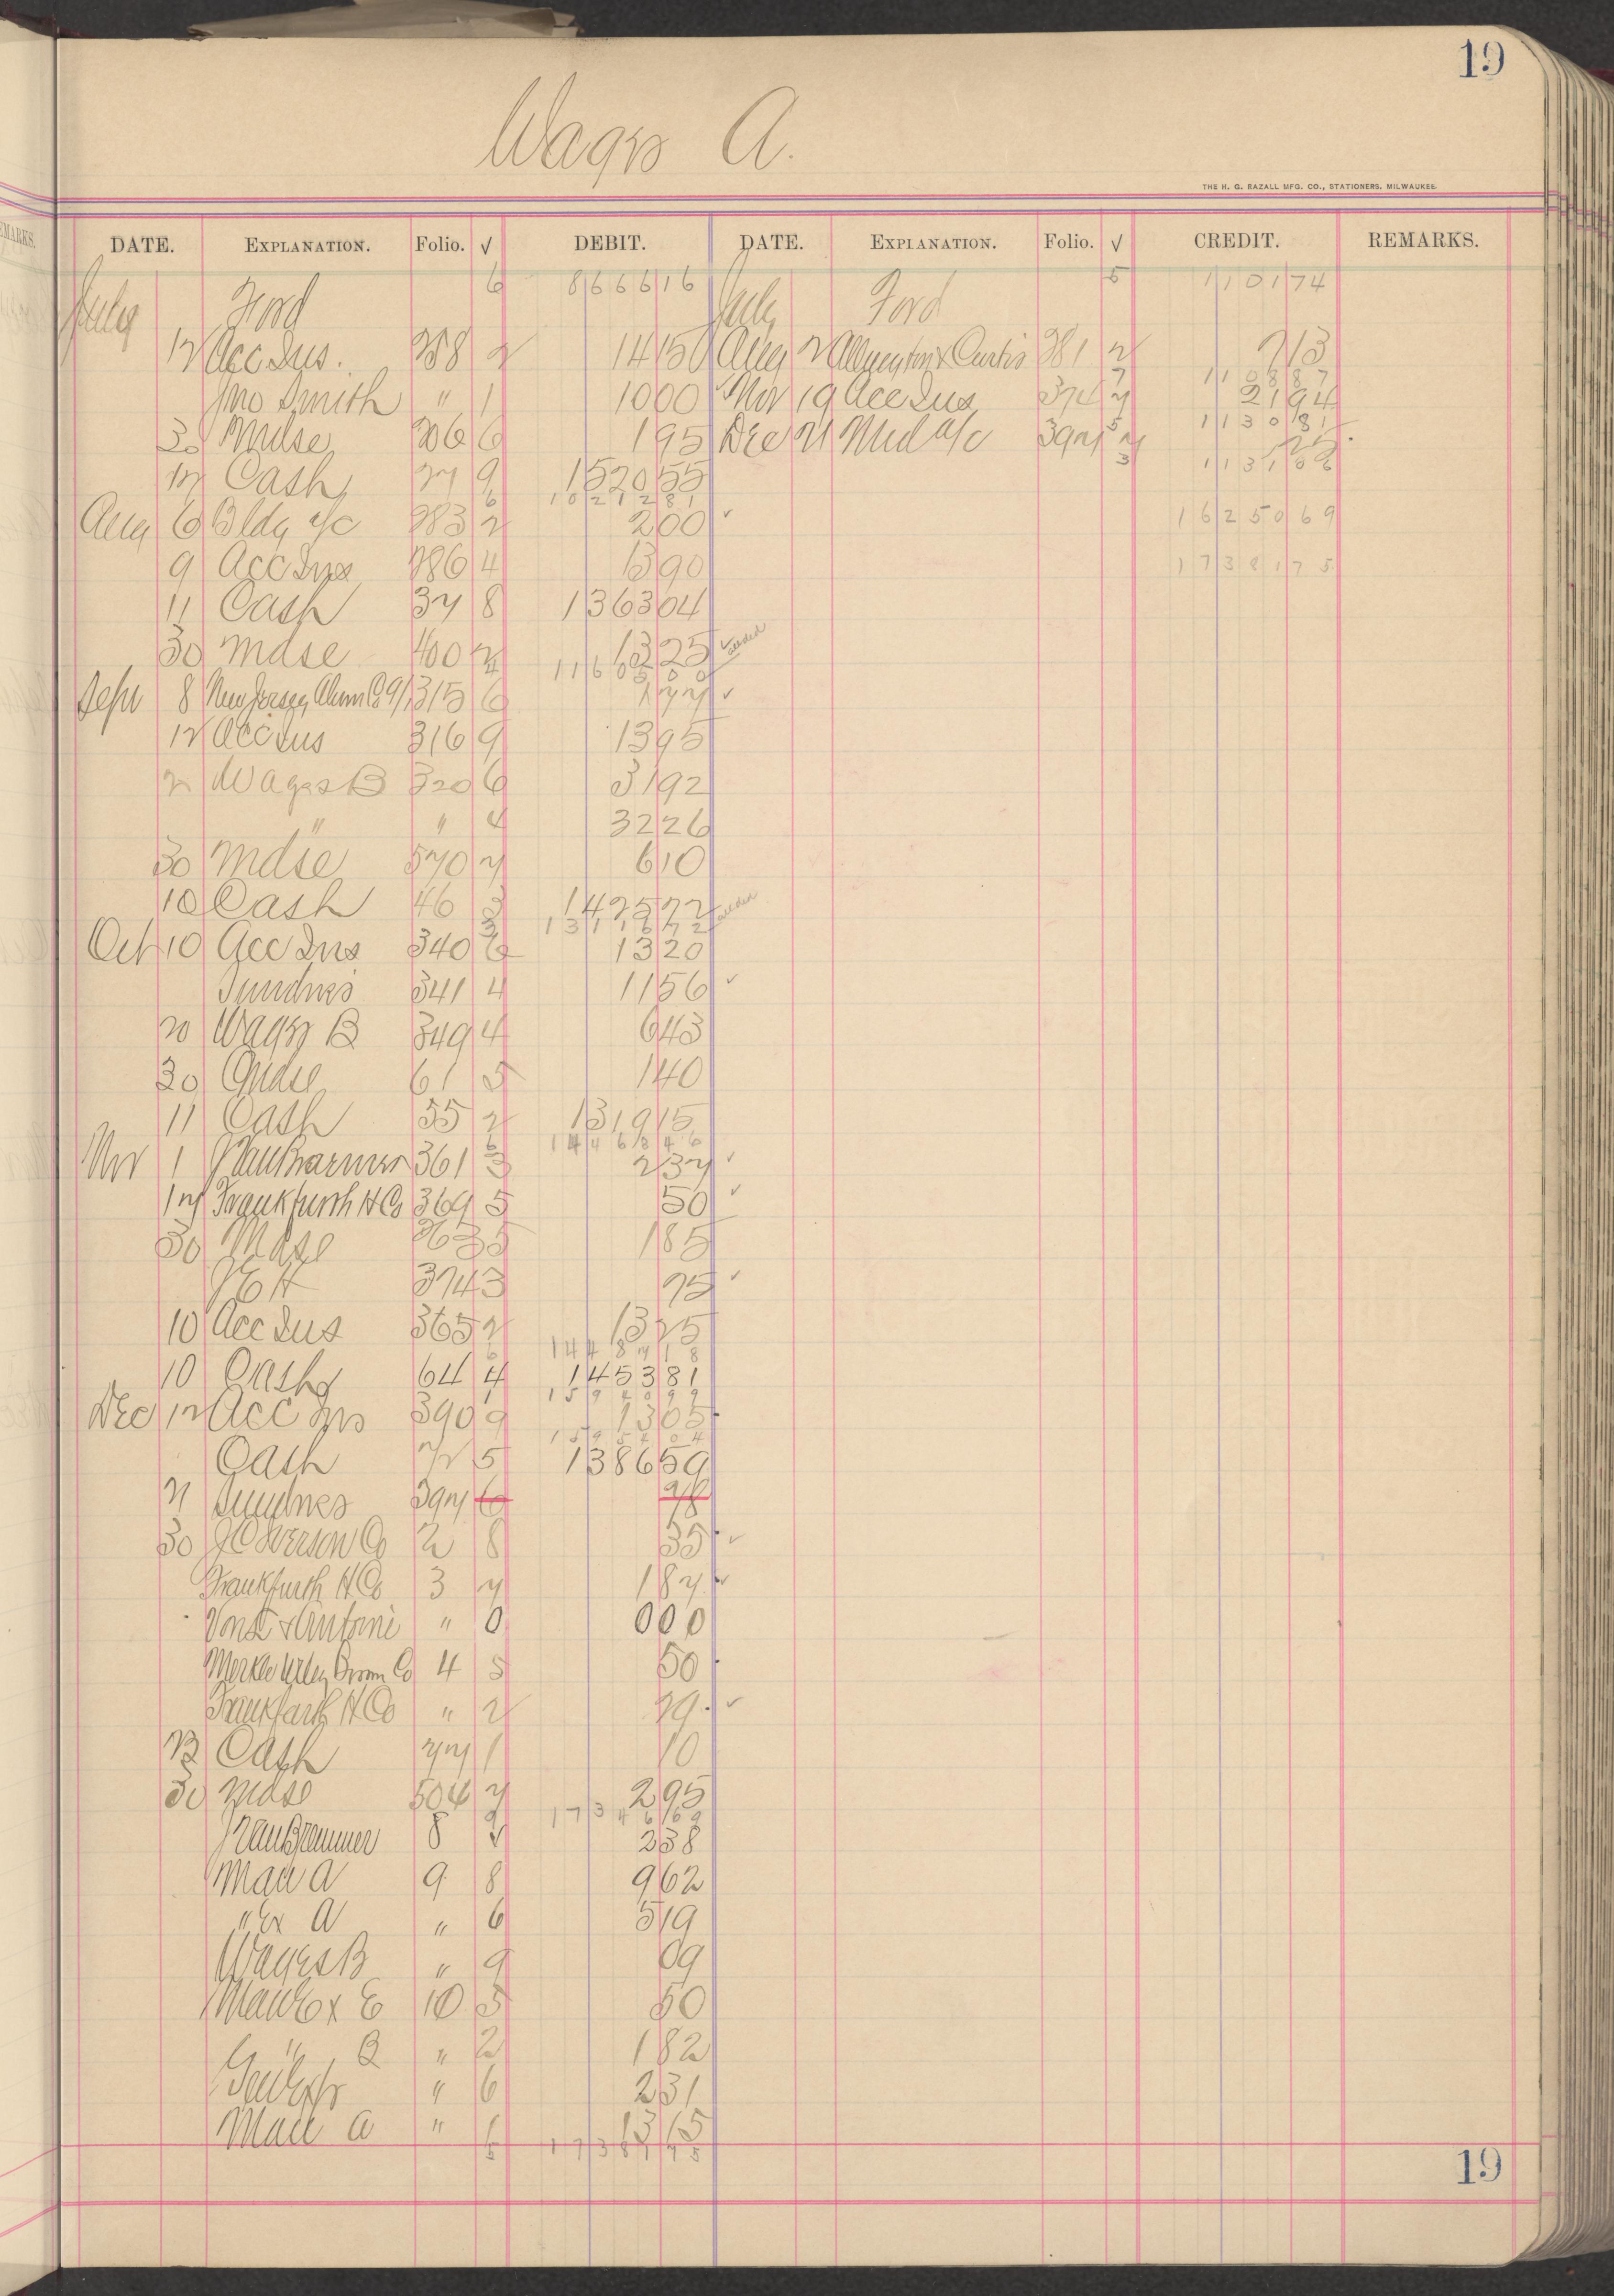 19
Wages A.
THE H. G. RAZALL MFG. CO., STATIONERS, MILWAUKEE.
DATE. EXPLANATION. Folio. √ DEBIT. DATE. EXPLANATION. Folio. √ CREDIT. REMARKS.
July Ford 6 8666 16 July Ford 5 1101 74
12 Acc Ins. 288 2 14 50 Aug 2 & Curtis 281 2 7 13
1108 87
Jno Smith " 1 10 00 Nov 19 Acc Ins 374 7 21 94
1130 81
30 Mdse 206 6 1 95 Dec 21 Mdl a/c 397 25
1131 06
Cash 9 1520 55
10212 81
Aug 6 Bldg a/c 283 2 2 00 ✓ 16250 69
9 Acc Ins 286 4 13 90 17381 75
11 Cash 37 8 1363 04
30 Mdse 400 2 13 25 ✓ added
Sept 8 New Jersey Alum Co 315 6 1 77 ✓
12 Acc Ins 316 9 13 95
Wages B 320 6 31 92
" " 4 32 26
30 Mdse 570 7 6 10
10 Cash 46 3 1425 72 added
Oct 10 Acc Ins 340 6 13 20
Sundries 341 4 11 56 ✓
20 Wages B 349 4 6 43
30 Mdse 61 5 1 40
11 Cash 55 2 1319 15
14468 46
Nov 1 361 3 2 37 ✓
17 Frankfurth H Co 369 5 50 ✓
30 Mdse 1 85
3743 75 ✓
10 Acc Ins 365 2 13 25
14487 18
10 Cash 64 4 1453 81
15940 99
Dec 12 Acc Ins 390 9 13 05
15954 04
Cash 72 5 1386 59
21 Sundries 397 6
30 Co 2 8 35 ✓
Frankfurth H Co 3 7 1 87 ✓
Vonst & Antoni " 0 0 00
Merkle Wiley Broom Co 4 5 50
Frankfurth H Co " 2 29 ✓
Cash 77 1 10
30 Mdse 504 7 2 95
17346 69
8 2 38
Man A 9 8 9 62
" Ex A " 6 5 19
Wages B " 9 09
Man Ex E 10 5 50
" B " 2 1 82
" 6 2 31
Man A " 13 15
17381 75
19